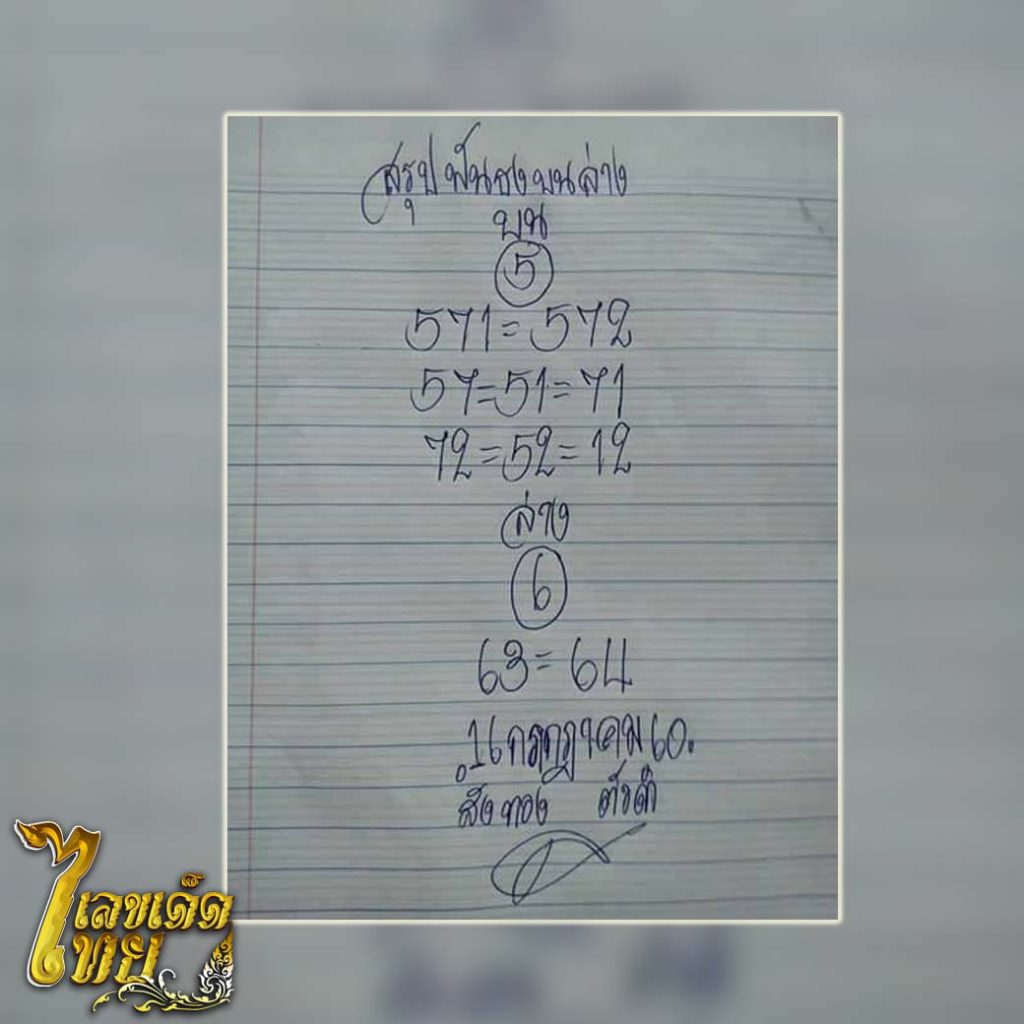 สรุปฟันธงบนล่าง
บน
5
571=572
57=51=71
72=52=12
ล่าง
6
63=64
16กรกฎาคม60.
สังทอง
เลขเด็ด
ไทย